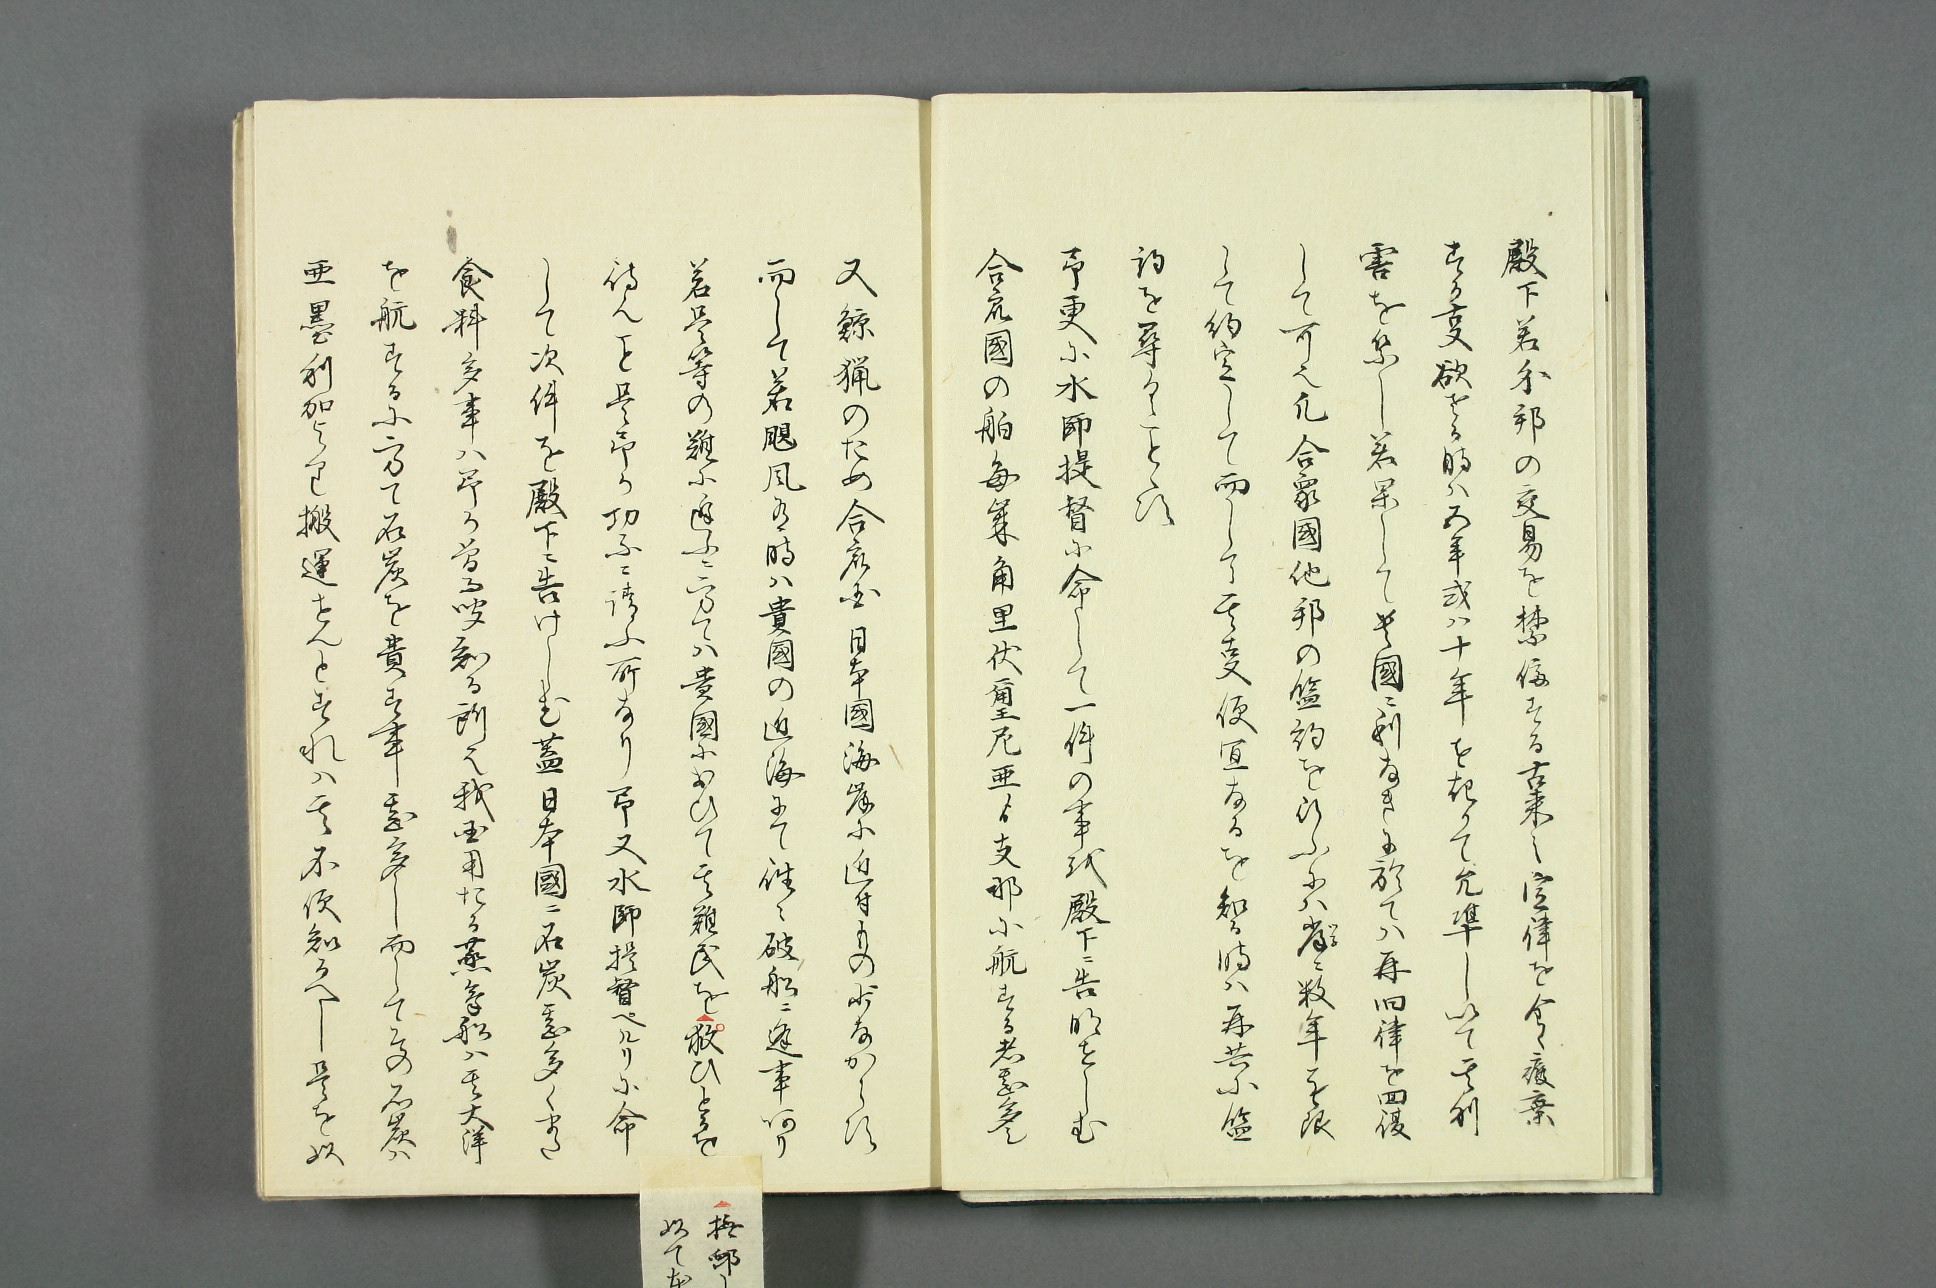 殿下若外邦の交易を禁停する古来之定律を全く廃棄
する支欲せる時ハ五年或ハ十年を抂て允準し以て其利
害を察し若果して貴國ニ利なきに於てハ再旧律を回復
して可也凡合衆國他邦の盟約を行ふにハ常ニ数年を限
して約定し而して其支便宜なるを知る時ハ再共小盟
約を尋くこと行
予更に水師提督に命して一件の事を殿下ニ告明せしむ
合衆國の舶毎歳角里伏爾尼亜より支那に航する者甚多し
又鯨猟のため合衆国日本國海岸に近付もの少なからす
而して若颶風ある時ハ貴國の近海にて往々破船ニ逢事あり
若是等の難に遇ふニ方てハ貴國に於ひて其難民を救ひ
待んこと是予か切ニ請ふ所なり予又水師提督ペルリに命
して次件を殿下ニ告けしむ蓋日本國ニ石炭甚多く
食料多事ハ予か曽て聞知る所也我国用たる蒸気船ハ其大洋
を航するに方て石炭を費す事甚多し而して其石炭ハ
亜墨利加より搬運せんとすれハ其不便知るへし是を以
撫卹し
以て